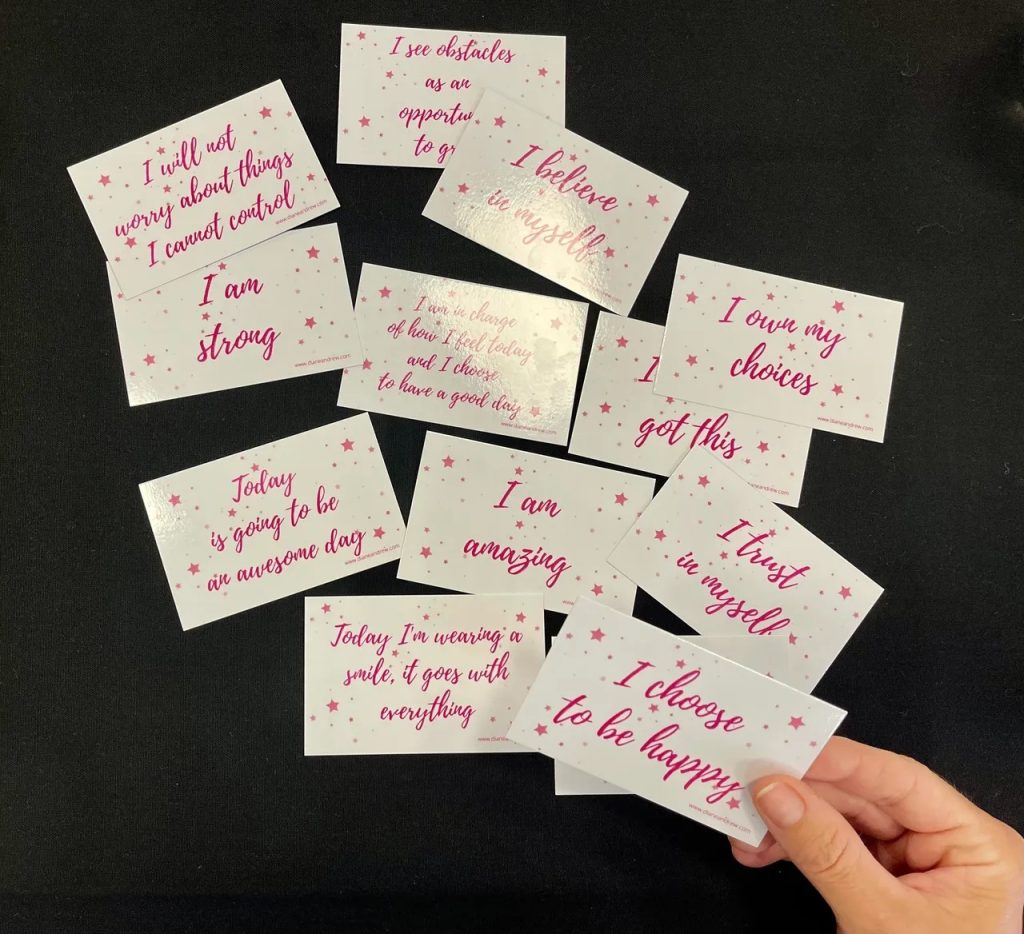 I see obstacles
as an
to
I will not
worry about things
I cannot control
www.dianeandrew.com
I believe
in myself
I am
strong
www.dianeandrew.com
I am in charge
of how I feel today
and I choose
to have a good day
www.dianeandrew.com
I own my
choices
www.dianeandrew.com
I
got this
www.dianeandrew.com
Today
is going to be
an awesome day
www.dianeandrew.com
I am
amazing
I trust
in myself
Today I'm wearing a
smile, it goes with
everything
I choose
to be happy
www.dianeandrew.com